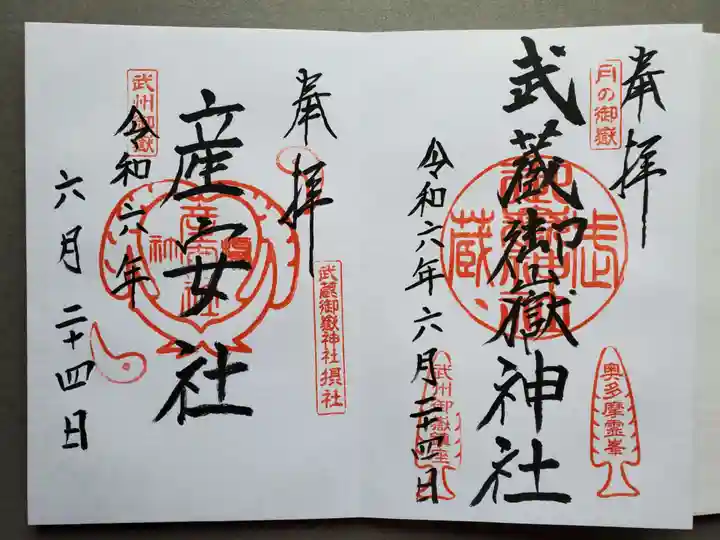 奉拝
月の御嶽
武蔵御嶽神社
令和六年六月二十四日
奥多摩霊峯
武州御嶽鎮座
奉拝
武蔵御嶽神社摂社
産安社
武州御嶽
令和六年
六月二十四日